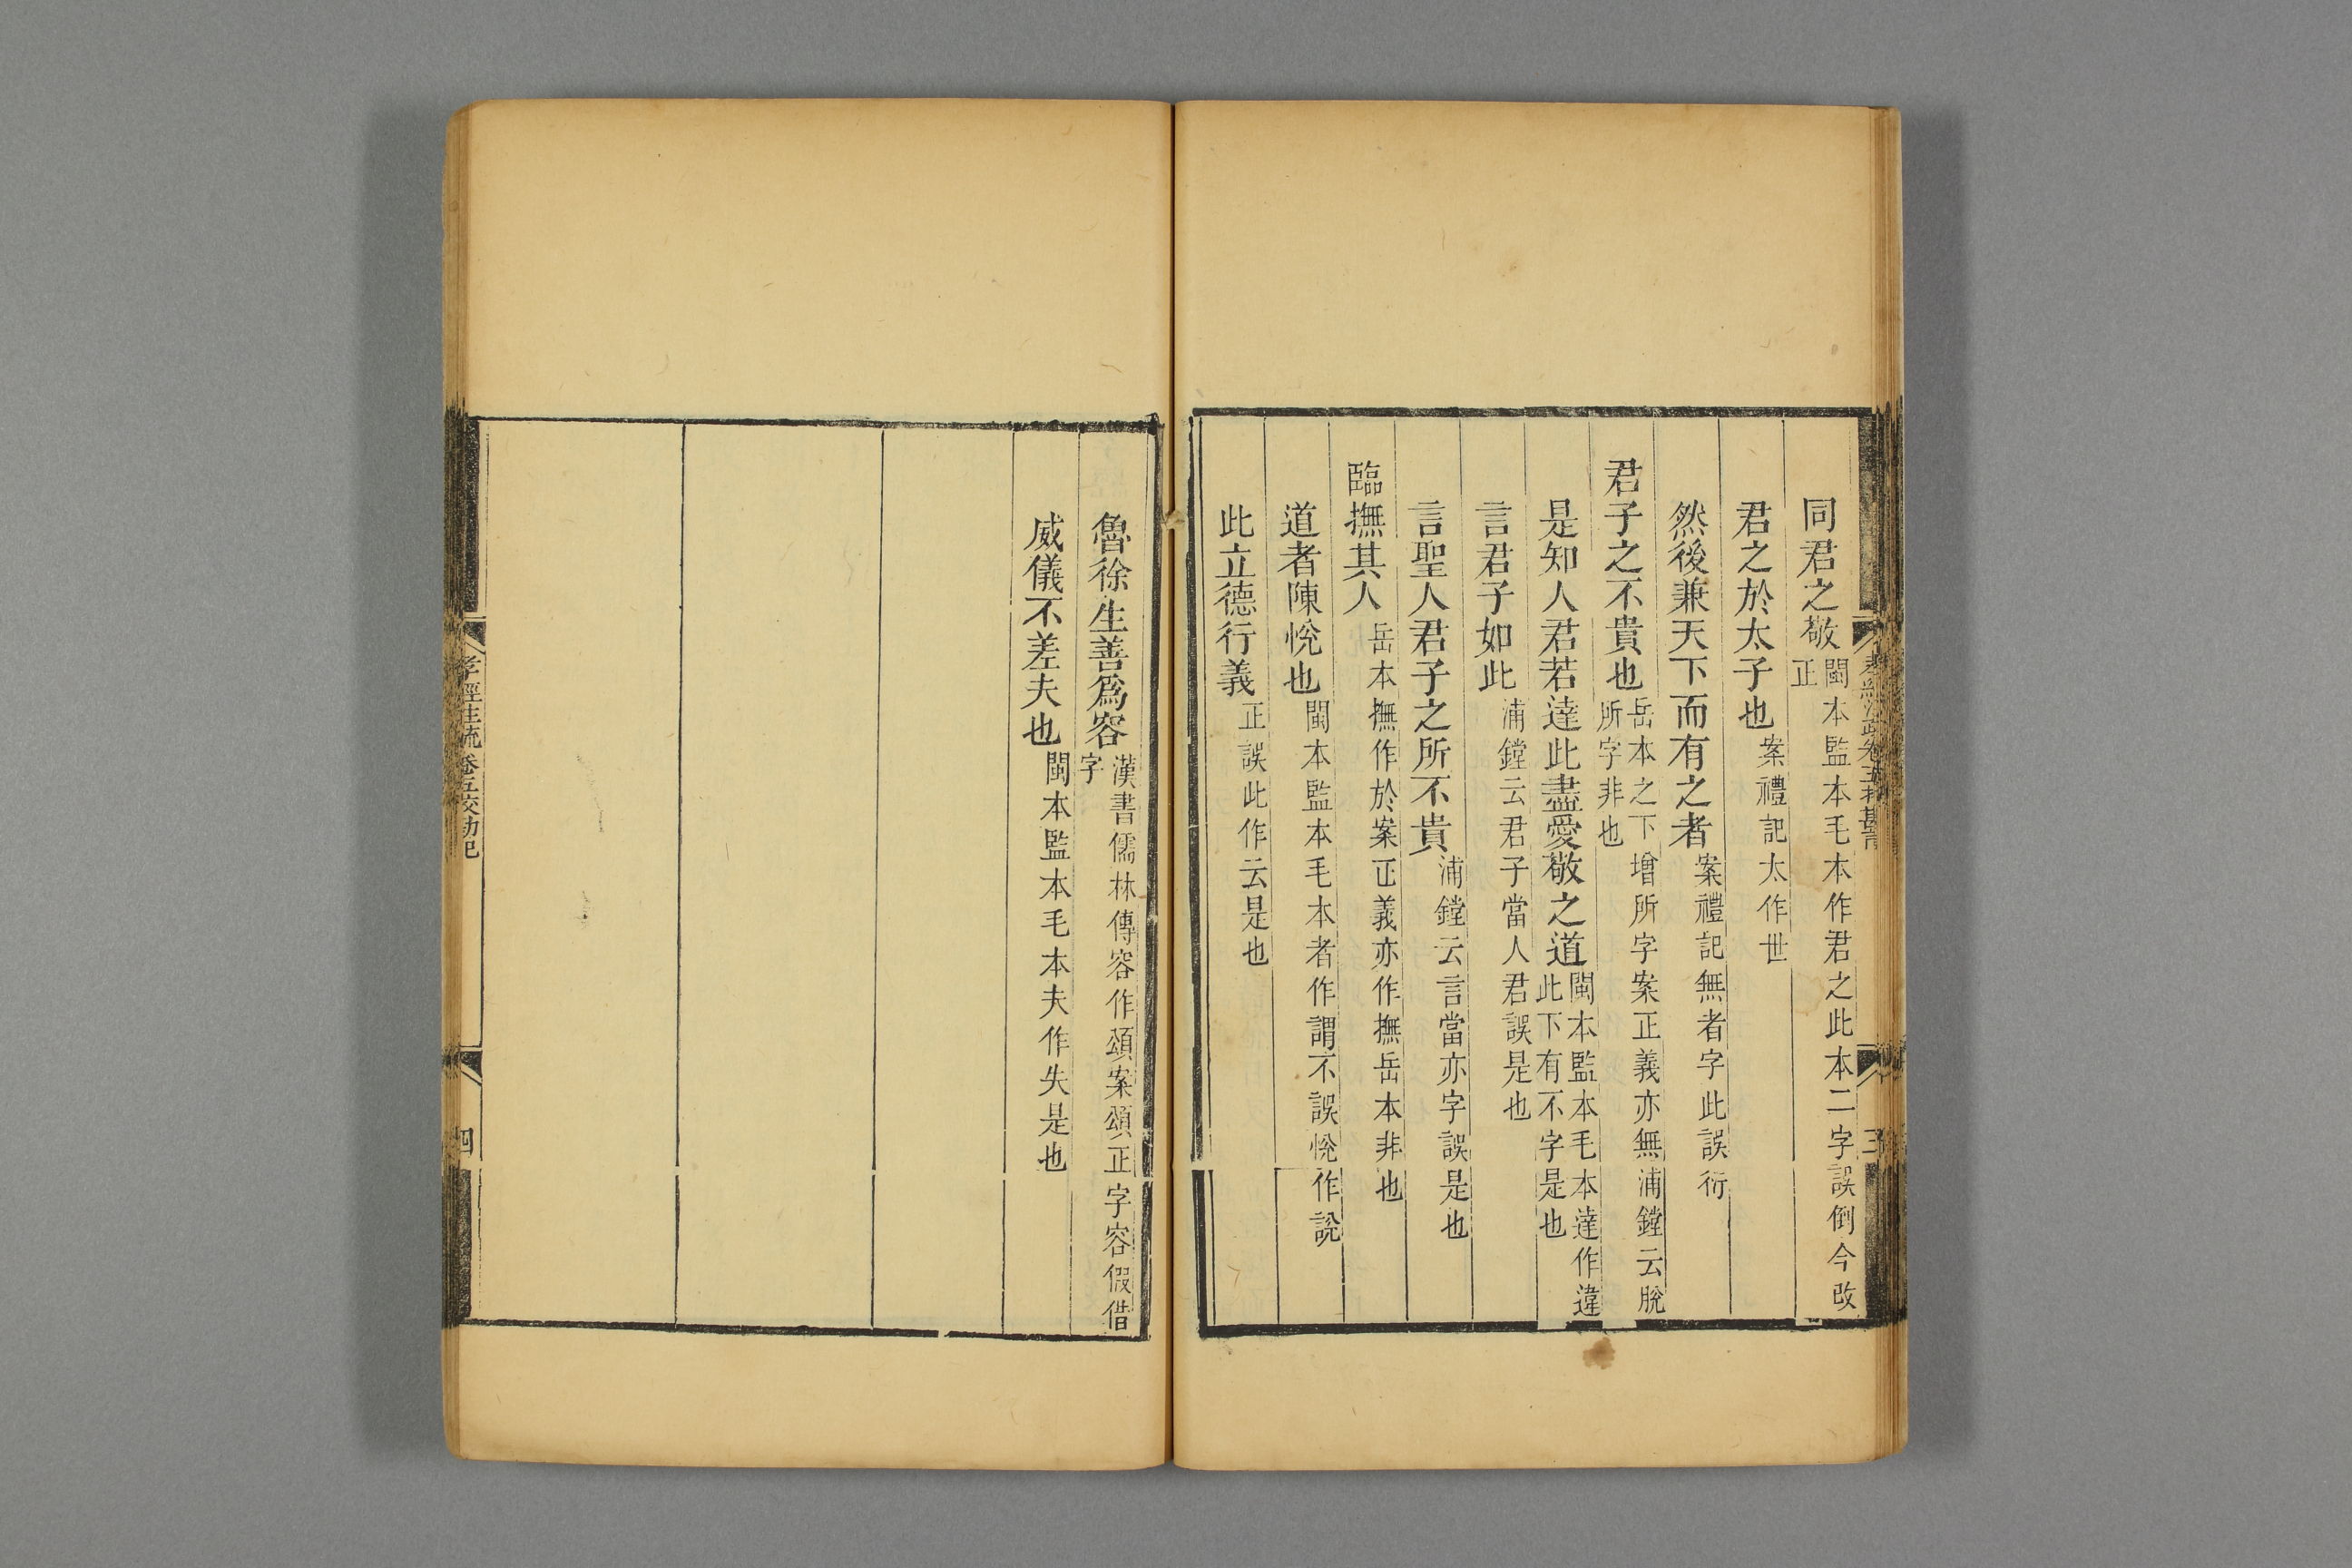 同君之敬閩本監本毛本作君之此本二字誤倒今改正
君之於太子也案禮記太作世
然後兼天下而有之者案禮記無者字此誤衍
君子之不貴也岳本之下增所字案正義亦無浦鏜云脫所字非也
是知人君若達此盡愛敬之道閩本監本毛本達作違此下有不字是也
言君子如此浦鏜云君子當人君誤是也
言聖人君子之所不貴浦鏜云言當亦字誤是也
臨撫其人岳本撫作於案正義亦作撫岳本非也
道者陳悅也閩本監本毛本者作謂不誤悅作說
此立德行義正誤此作云是也
魯徐生善爲容漢書儒林傳容作頌案頌正字容假借字
威儀不差夫也閩本監本毛本夫作失是也
孝經注疏卷五校勘記
四